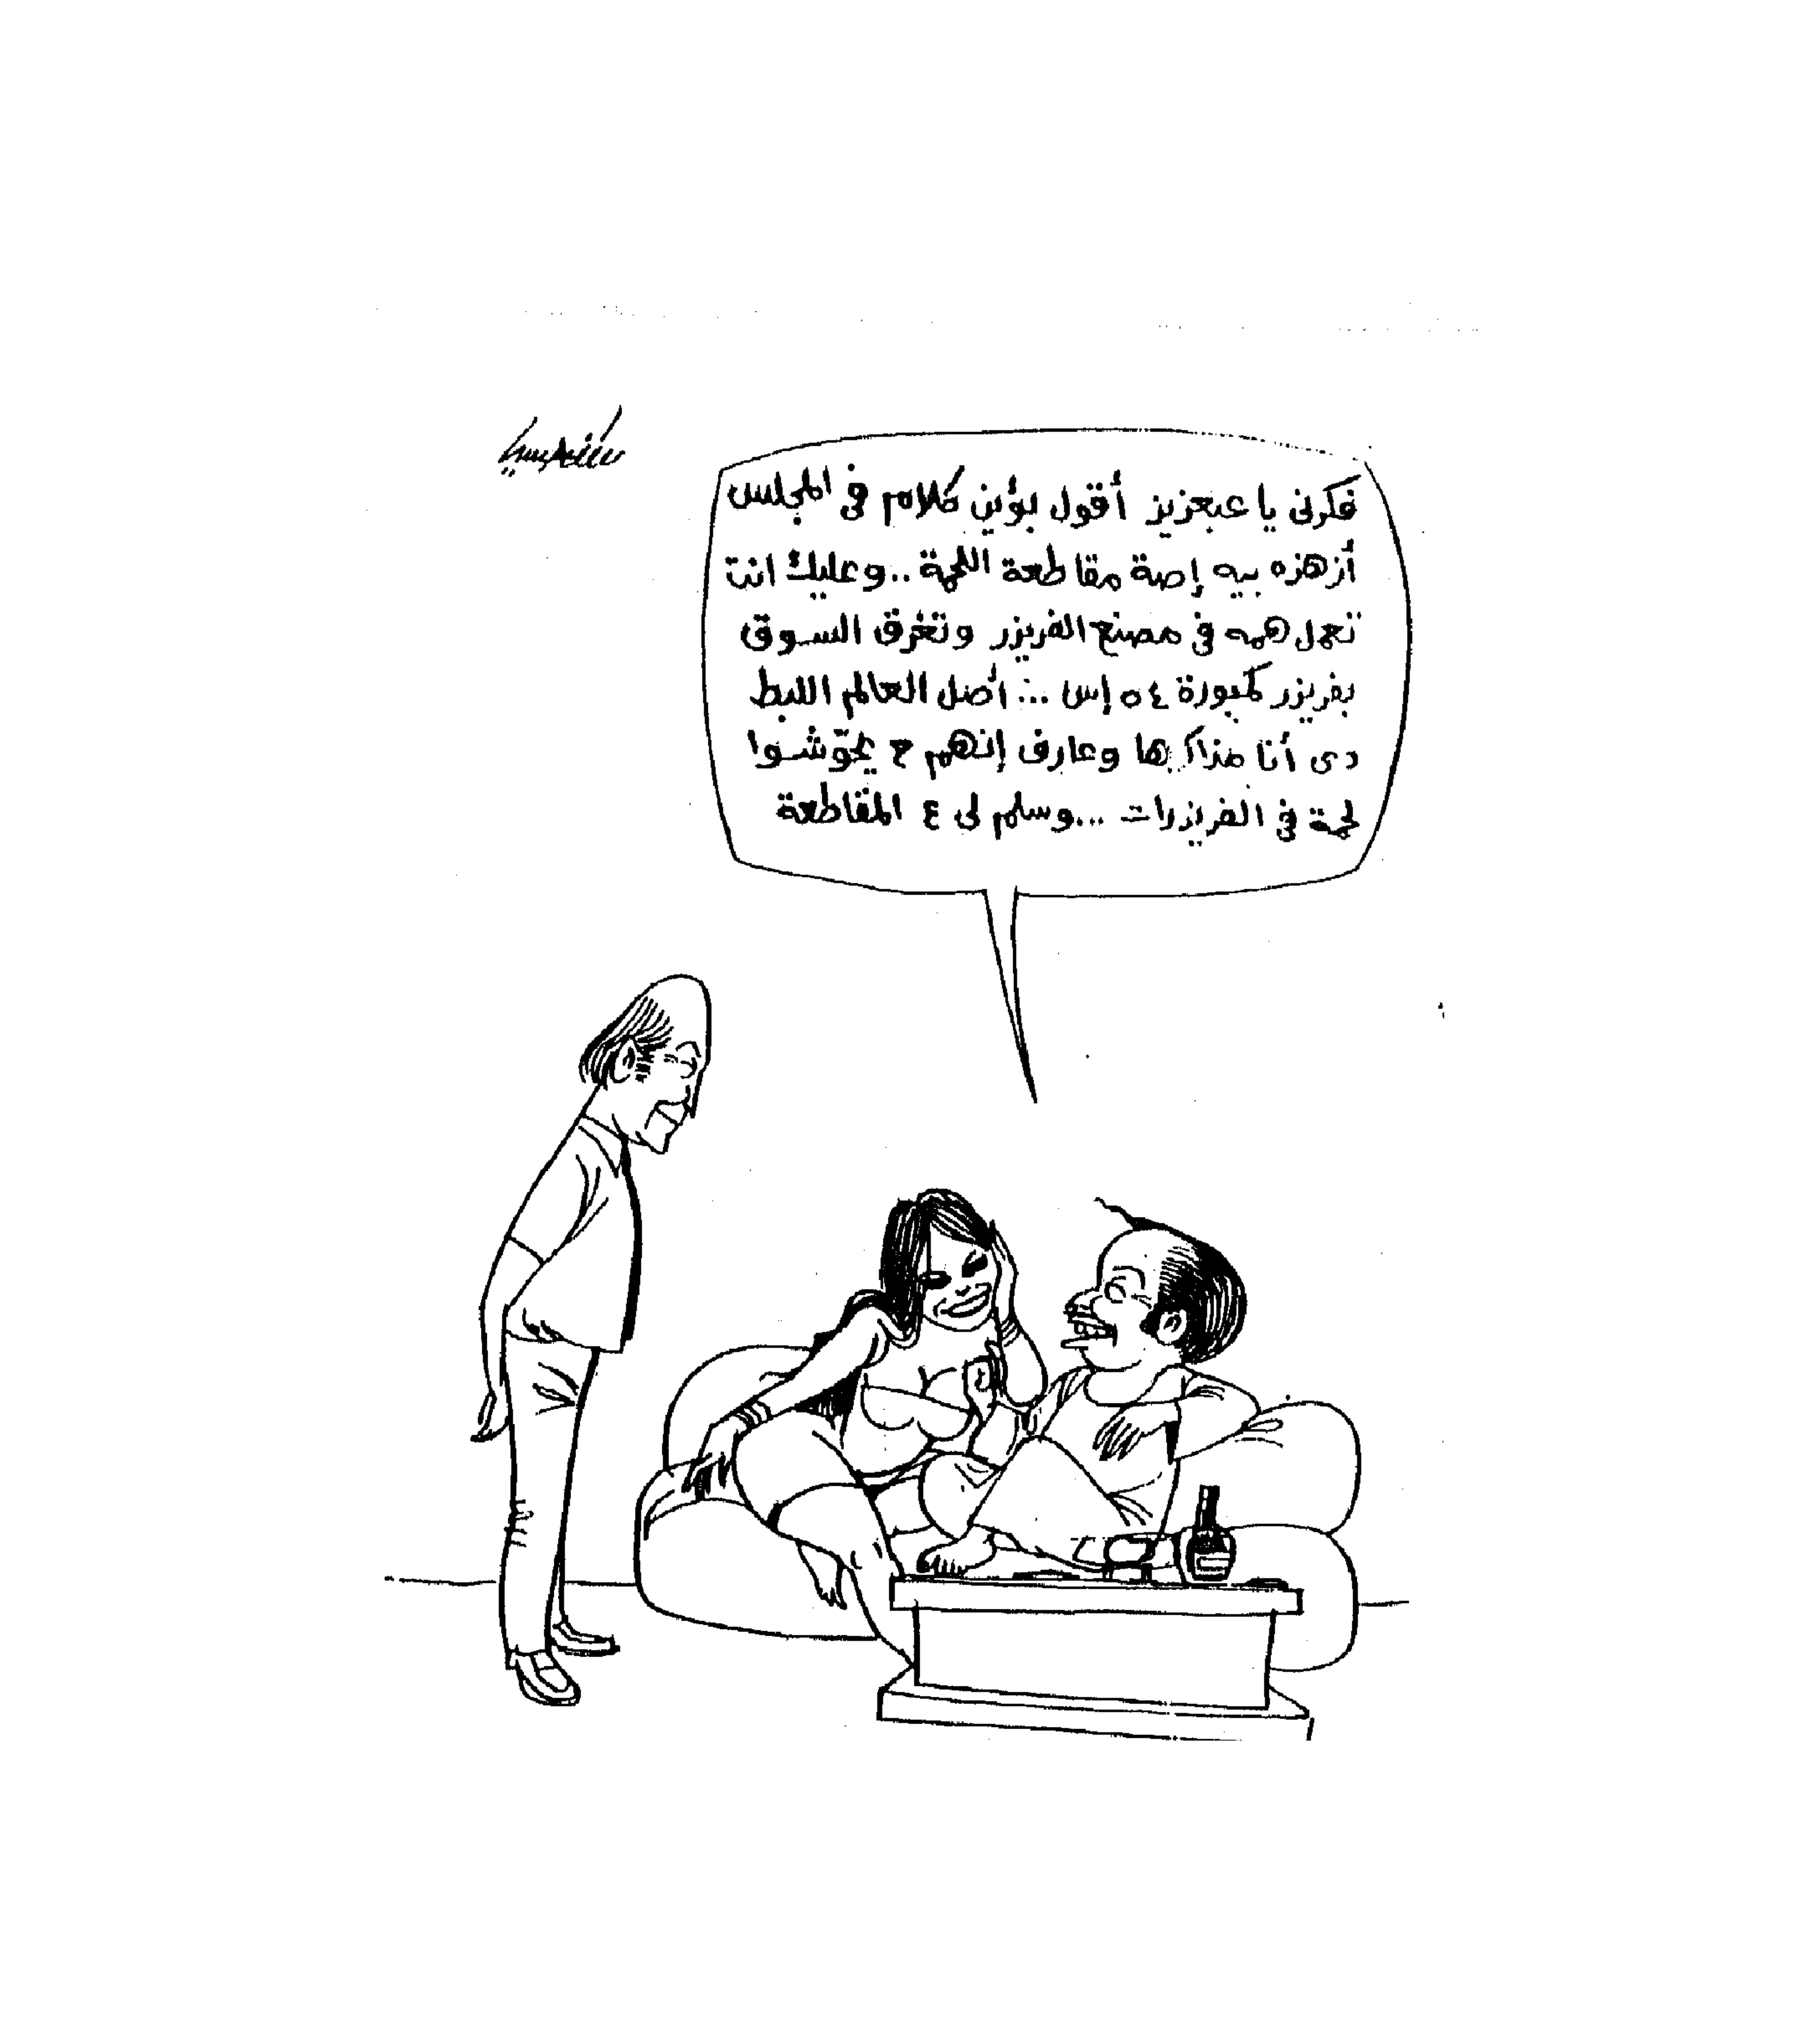 فكرنى يا عبعزيز أقول بؤين كلام فى المجلس
أزهزه بيه إصة مقاطعة اللحمة .. وعليك انت
تعمل همه فى مصنع الفريزر وتغرق السوق
بفريزر كمبورة ٥٤ إس ... أصل العالم اللبط
دى أنا مذاكرها وعارف إنهم ح يحوّشوا
لحمة فى الفريزرات ... وسلم لى ع المقاطعة